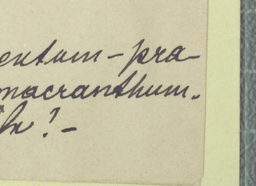 entum-pra-
macranthum.